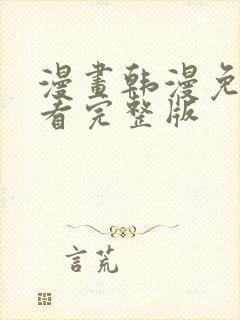 漫畫韩漫免
看完整版
言荒